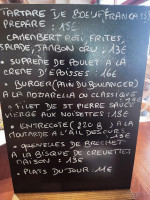 TARTARE DE BOEUF FRANÇAIS
PREPARE : 15€
CAMEMBERT ROTI, FRITES,
SALADE, JAMBON CRU : 13€
• SUPREME DE POULET A LA
CREME D'EPOISSES : 16€
• BURGER (PAIN DU BOULANGER)
A LA MOZARELLA OU CLASSIQUE
• FILET DE ST PIERRE SAUCE
VIERGE AUX NOISETTES : 18€
• ENTRECOTE (220 g) A LA
MOUTARDE A L'AIL DES OURS :
• QUENELLES DE BROCHET
A LA BISQUE DE CREVETTES
MAISON : 13€
• PLATS DU JOUR : 11€